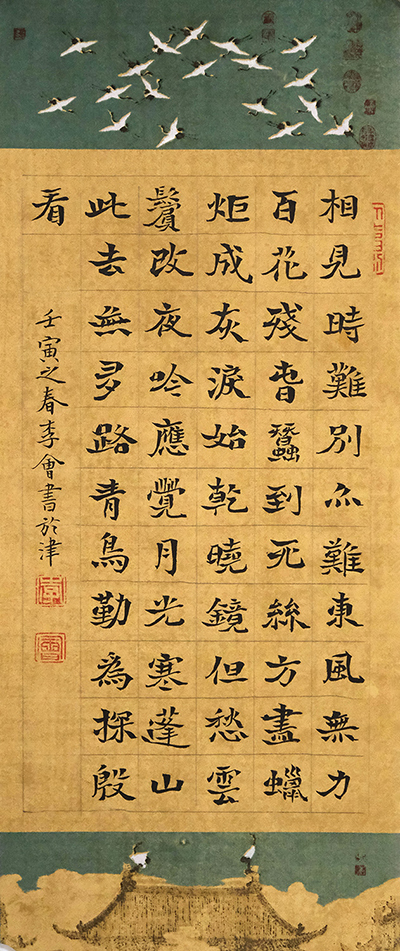 相見時難別亦難東風無力
百花殘旾蠶到死絲方盡蠟
炬成灰淚始乾曉鏡但愁雲
鬢改夜吟應覺月光寒蓬山
此去無多路青鳥勤爲探殷
看
壬寅之春李會書於津